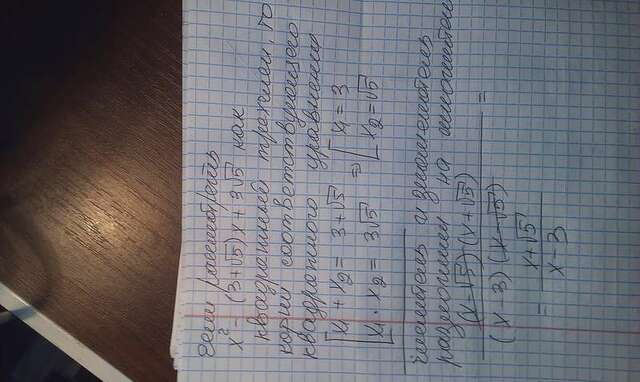 если рассмотреть
x² (3+√5)x+3√5 как
квадратный трехчлен, то
корни соответствующего
квадратного уравнения
[x₁ + x₂ = 3+√5 ⇒ [x₁ = 3
[x₁ · x₂ = 3√5 [x₂ = √5
числитель и знаменатель
разложим на множители
(x-√5)(x+√5)
(x-3)(x-√5) =
= x+√5
x-3